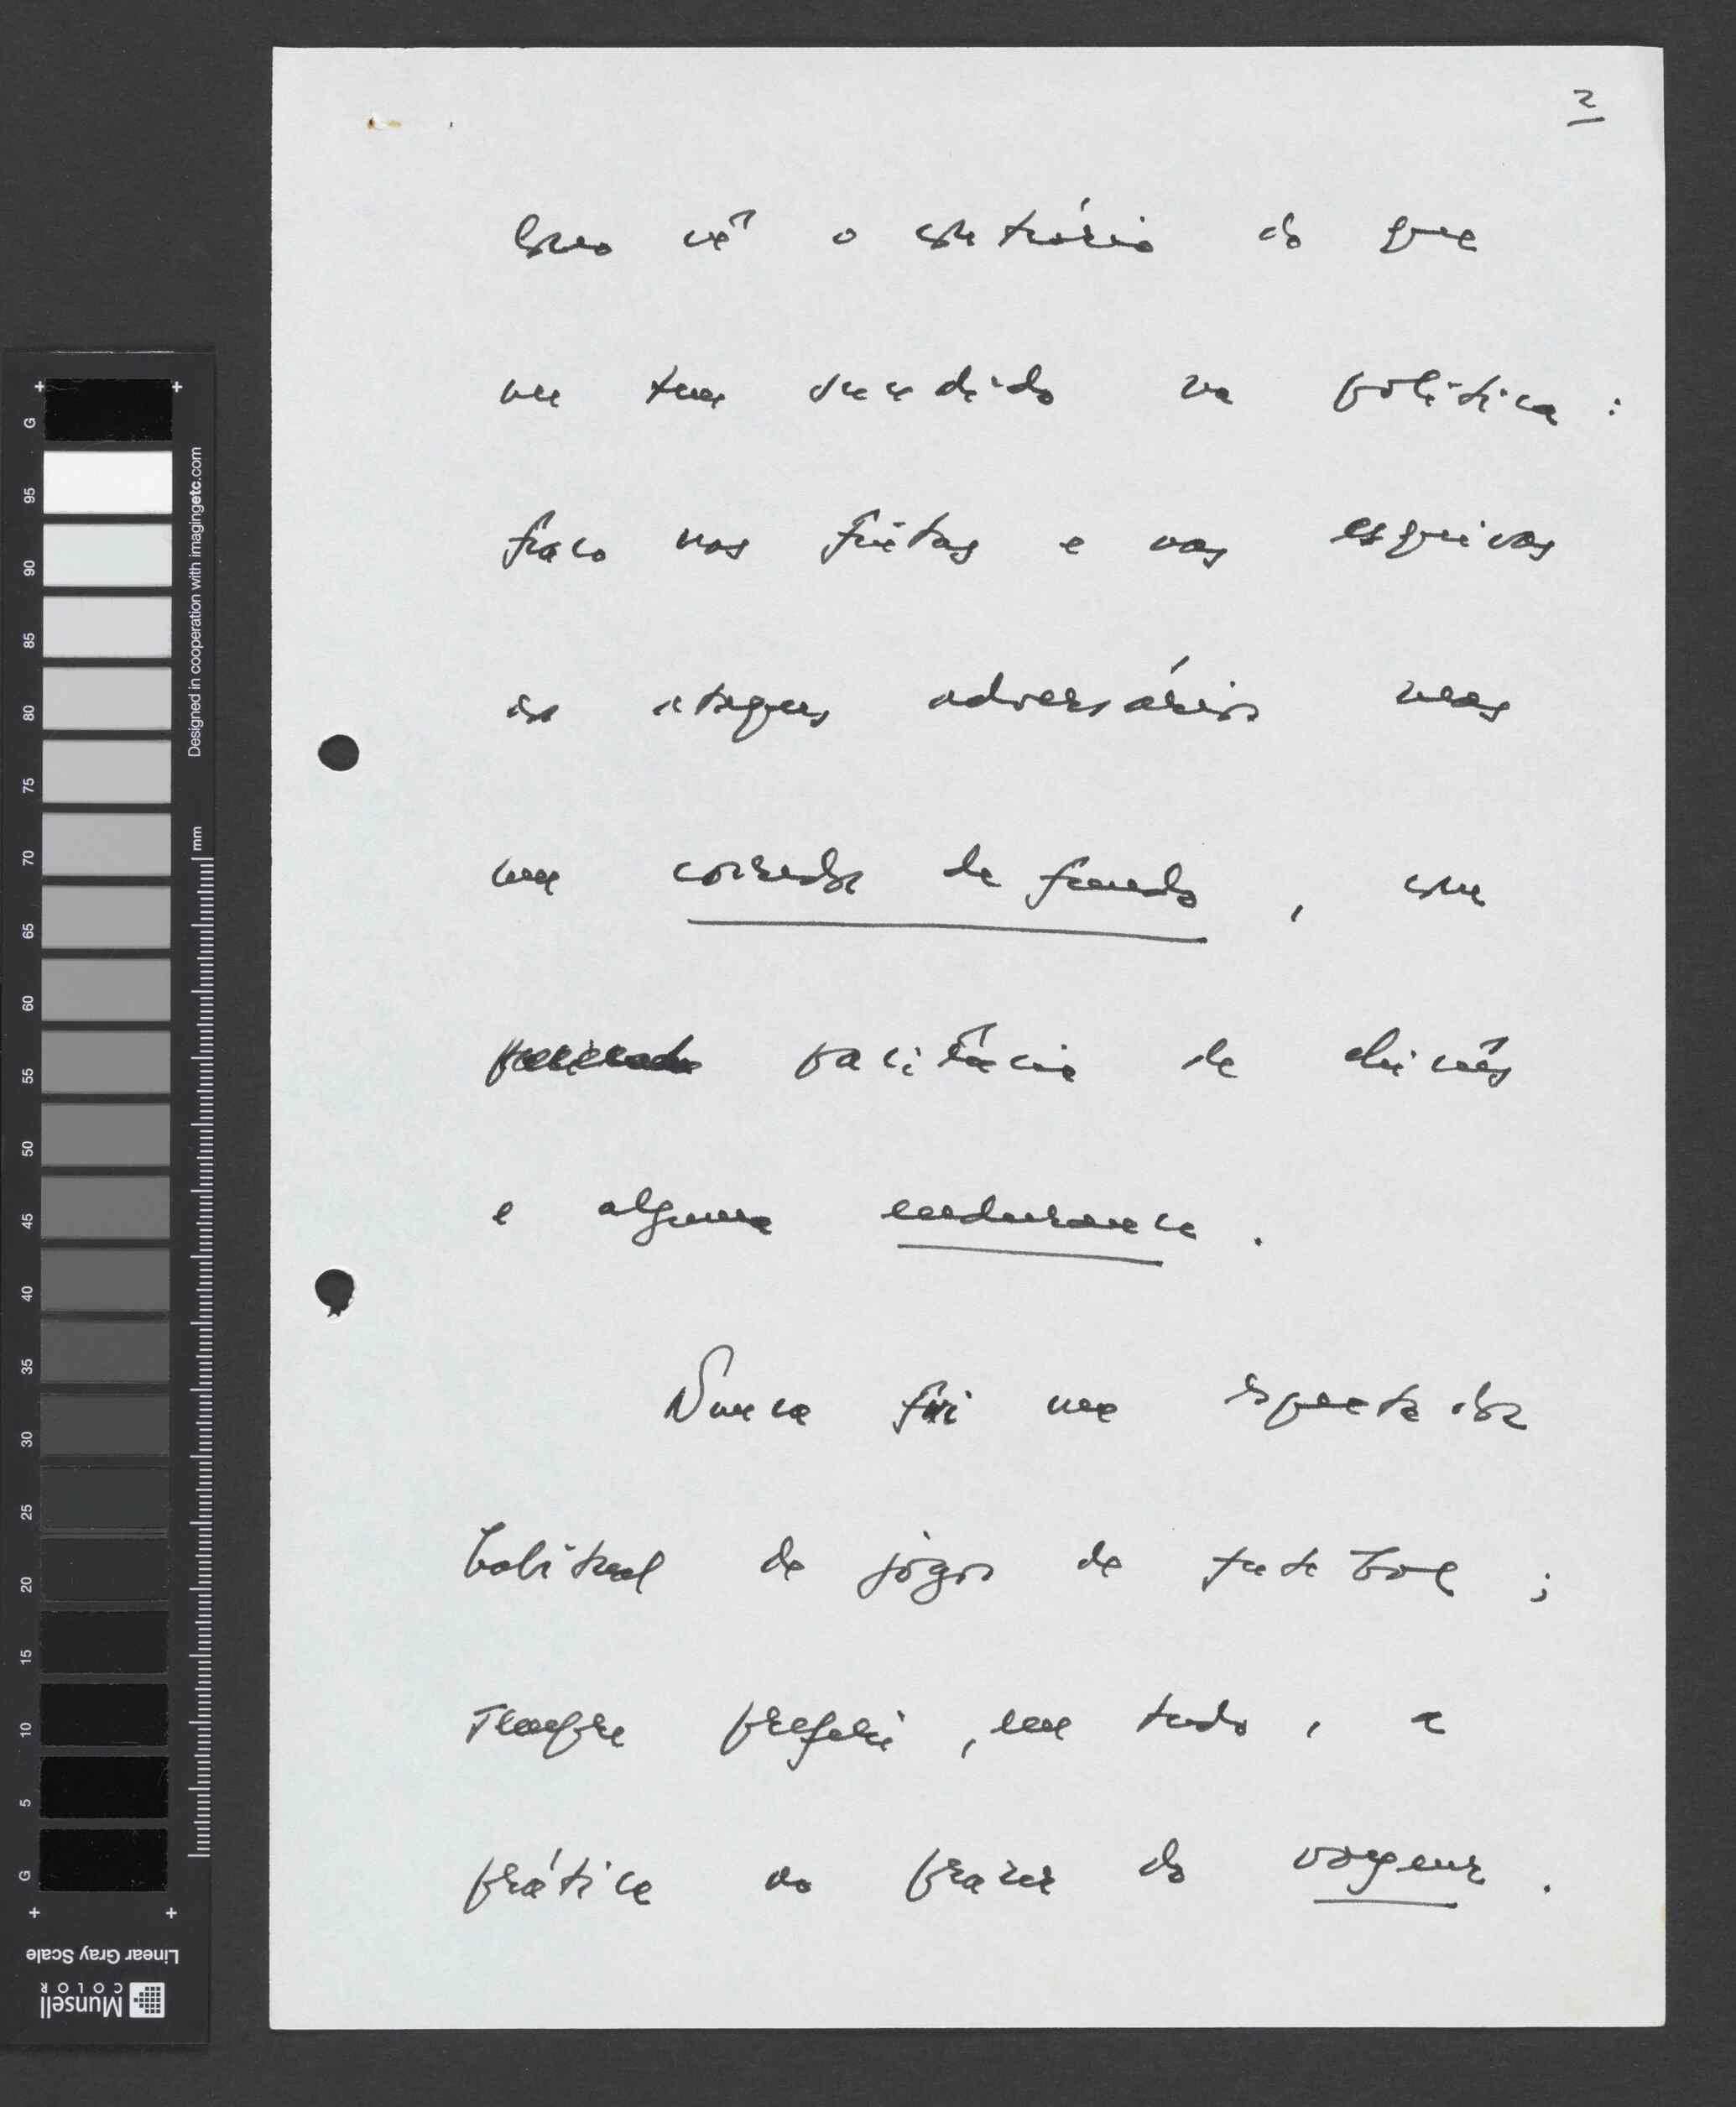 2
Como vê o contrário do que
me tem sucedido na política:
fraco nas fintas e nas esquivas
aos ataques adversários mas
um corredor de fundo, com
paciência de chinês
e alguma endurance.
Nunca fui um espectador
habitual de jogos de futebol;
sempre preferi, em tudo, a
prática ao prazer do voyeur.
G
95
90
85
80
75
70
65
60
55
50
45
40
35
30
25
20
15
10
5
G
mm
Designed in cooperation with imagingetc.com
Linear Gray Scale
Munsell
COLOR